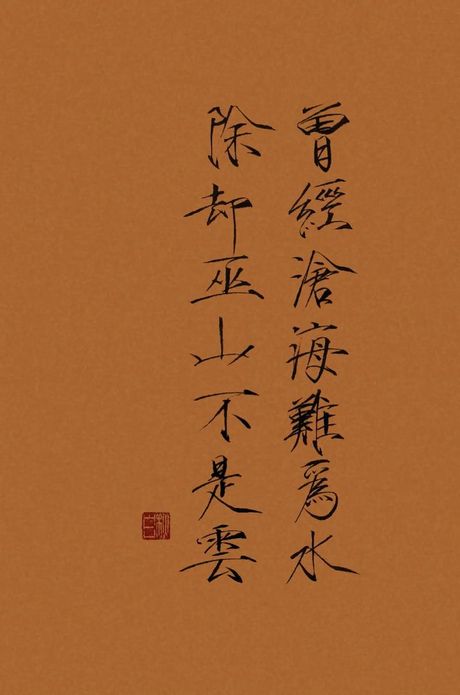 曾經滄海難爲水
除却巫山不是雲